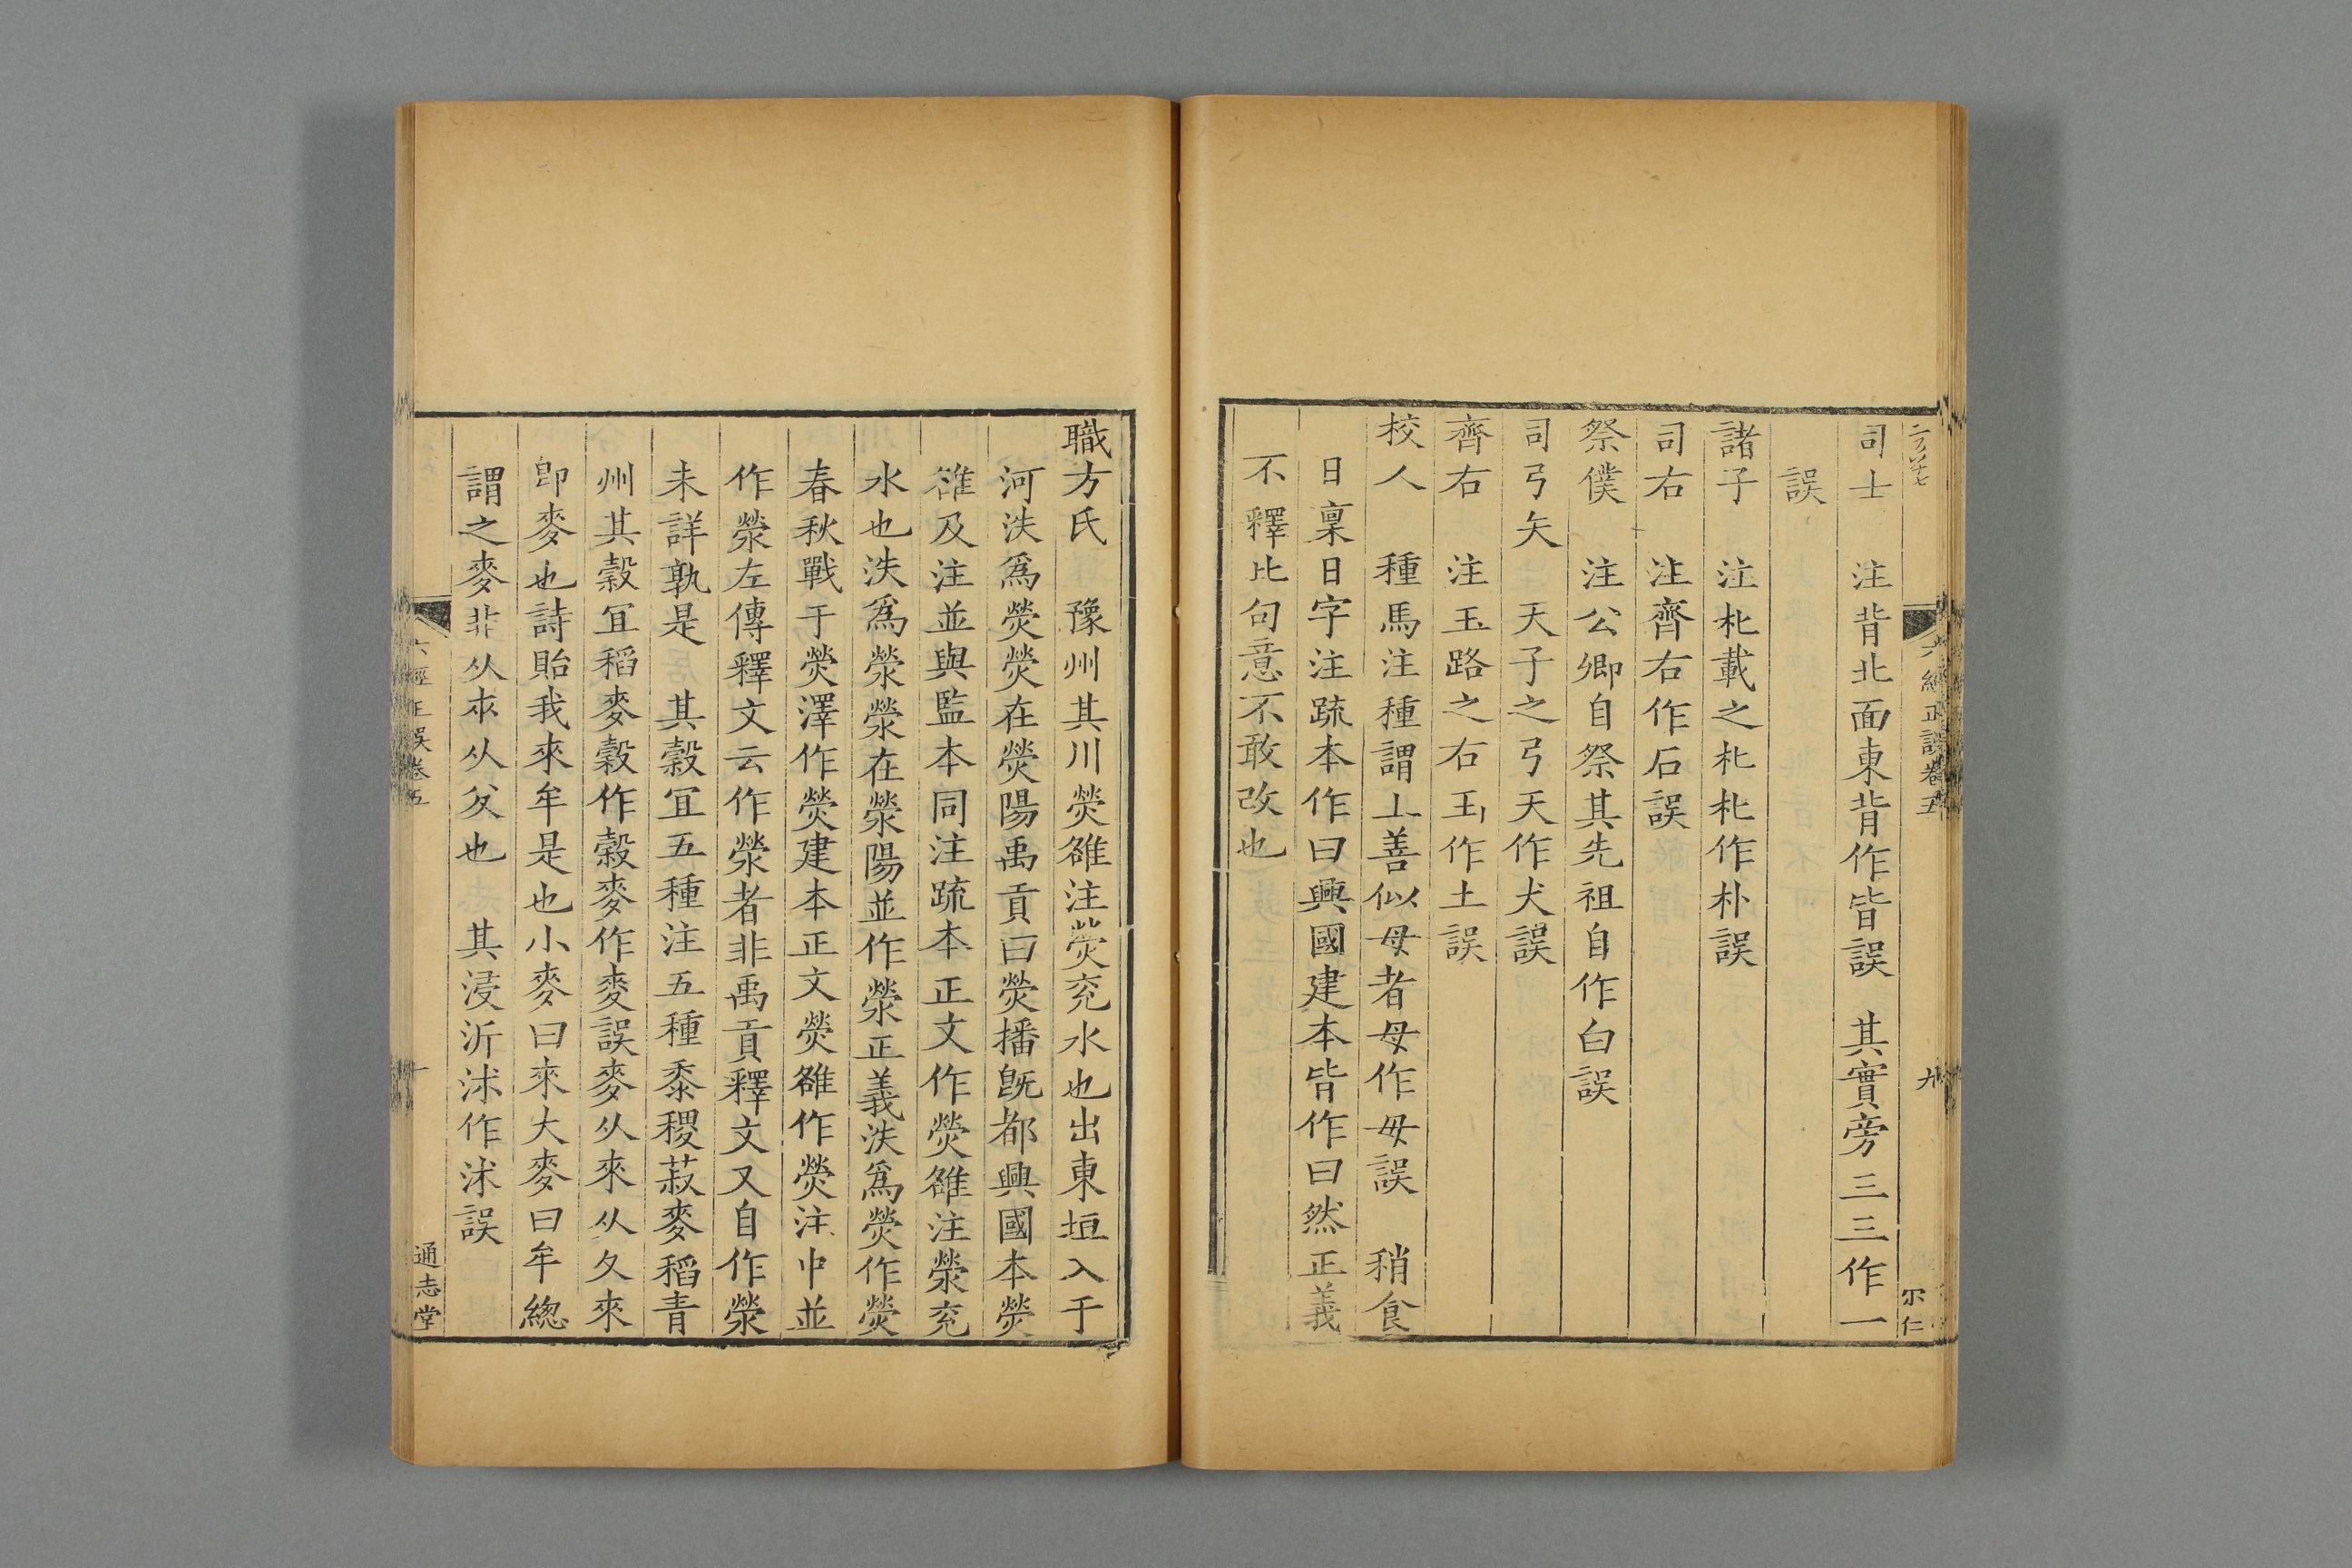 六經正誤卷五
九
尔仁
司士 注背北面東背作皆誤 其實旁三三作一
誤
諸子 注朼載之朼朼作朴誤
司右 注齊右作石誤
祭僕 注公卿自祭其先祖自作白誤
司弓矢 天子之弓天作犬誤
齊右 注玉路之右玉作土誤
校人 種馬注種謂上善似母者母作毋誤 稍食
日稟日字注疏本作曰興國建本皆作曰然正義
不釋比句意不敢改也
職方氏 豫州其川熒雒注熒兖水也出東垣入于
河泆爲熒熒在熒陽禹貢曰熒播旣都興國本熒
雒及注並與監本同注疏本正文作熒雒注滎兖
水也泆爲滎滎在滎陽並作滎正義泆爲熒作熒
春秋戰于熒澤作熒建本正文熒雒作熒注中並
作滎左傳釋文云作滎者非禹貢釋文又自作滎
未詳孰是 其穀冝五種注五種黍稷菽麥稻青
州其穀冝稻麥穀作糓麥作麦誤麥从來从夂來
卽麥也詩貽我來牟是也小麥曰來大麥曰牟緫
謂之麥非从夾从夊也 其浸沂沭作沬誤
六經正誤卷五
十
通志堂